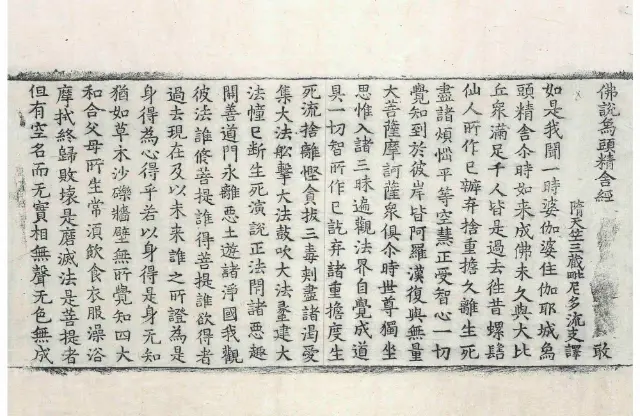 佛說象頭精舍經 敢
隋天竺三藏毗尼多流支譯
如是我聞一時婆伽婆住伽耶城象
頭精舍尒時如来成佛未久與大比
丘衆滿足千人皆是過去徃昔螺髻
仙人所作已辦弃捨重擔久離生死
盡諸煩惱平等空慧正受智心一切
覺知到於彼岸皆阿羅漢復與無量
大菩薩摩訶薩衆俱尒時世尊獨坐
思惟入諸三昧遍觀法界自覺成道
具一切智所作已訖弃諸重擔度生
死流捨離慳貪拔三毒刾盡諸渴愛
集大法舩擊大法鼓吹大法䗍建大
法幢已断生死演說正法閇諸惡趣
開善道門永離惡土遊諸淨國我觀
彼法誰修菩提誰得菩提誰欲得者
過去現在及以未来誰之所證為是
身得為心得乎若以身得是身无知
猶如草木沙礫牆壁无所覺知四大
和合父母所生常湏飲食衣服澡浴
摩拭終歸敗壞是磨滅法是菩提者
但有空名而无實相無聲无色無成